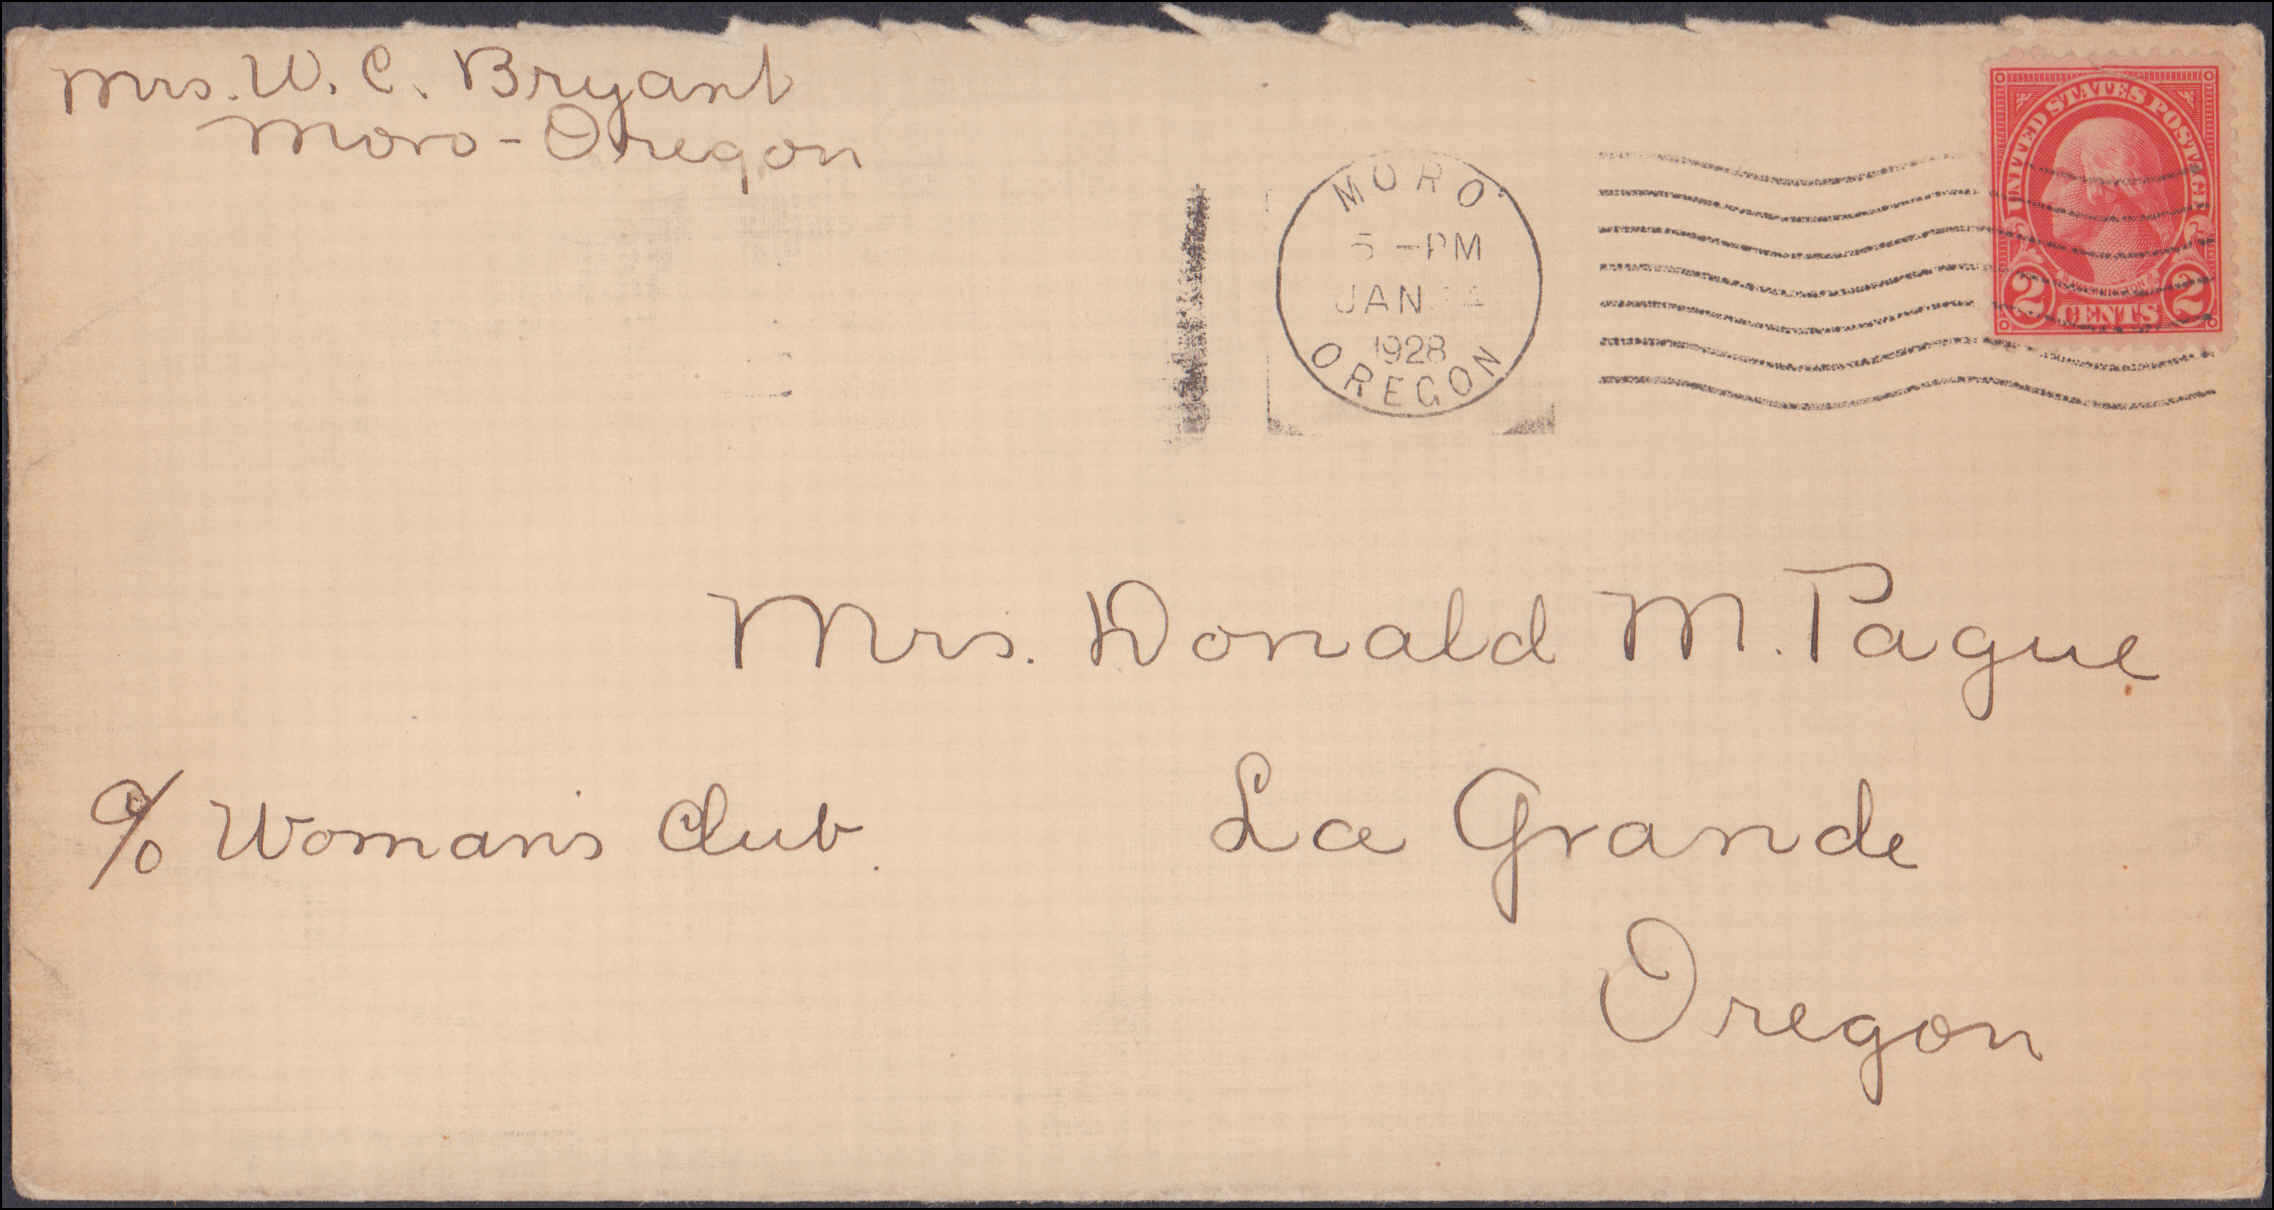 Mrs. W. C. Bryant
Moro - Oregon
MORO
5 -PM
JAN
1928
OREGON
UNITED STATES POSTAGE
2 CENTS 2
Mrs. Donald M. Pague
c/o Woman's Club.
La Grande
Oregon